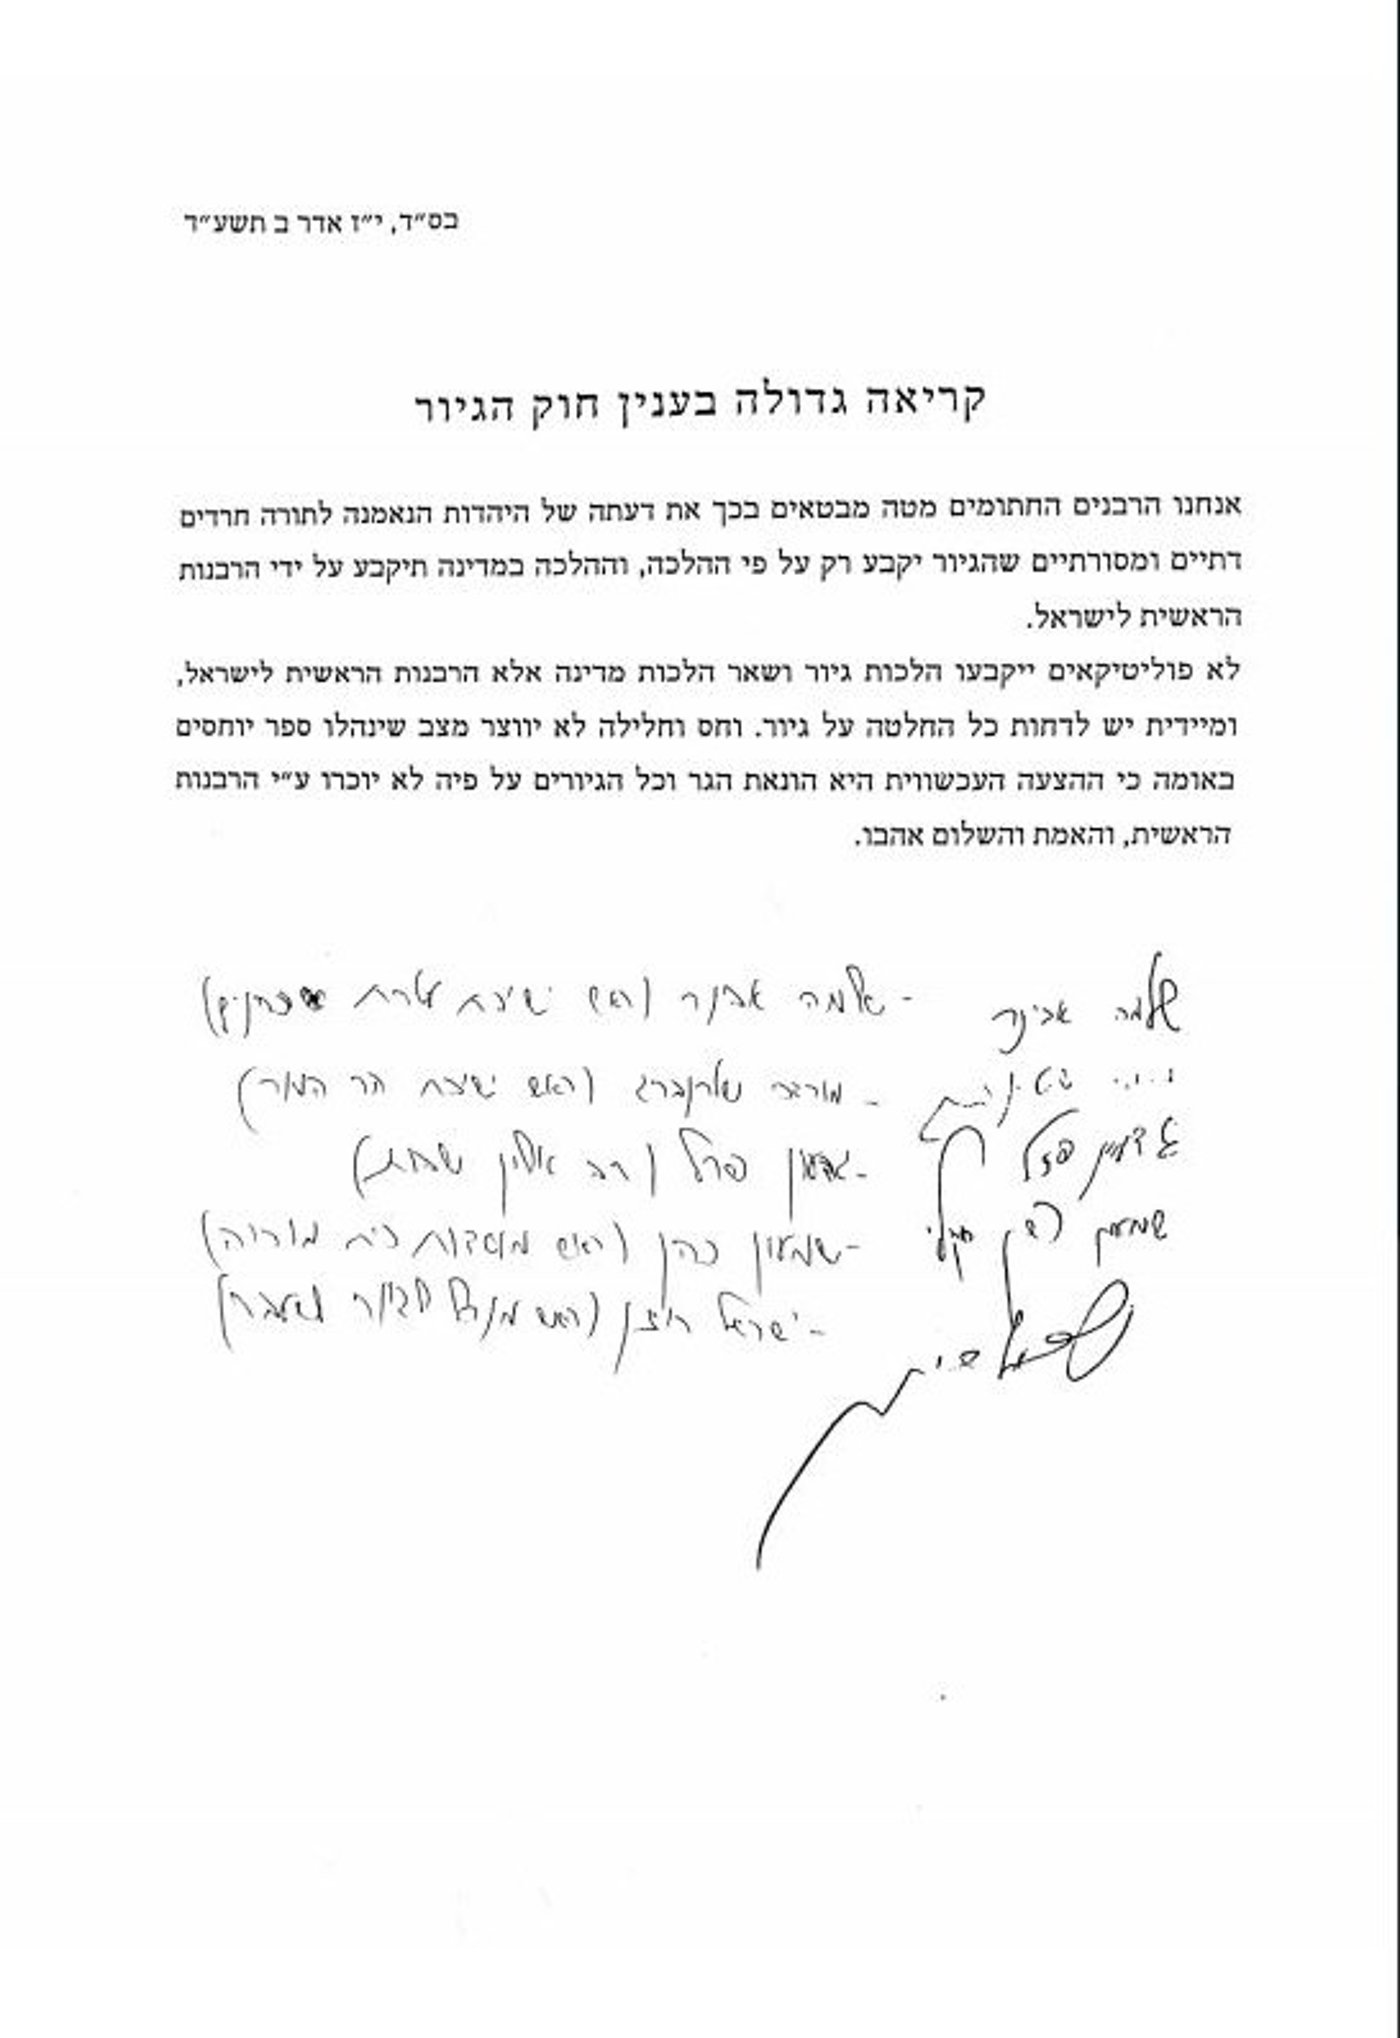 בס״ד, י״ז אדר ב תשע״ד
קריאה גדולה בענין חוק הגיור
אנחנו הרבנים החתומים מטה מבטאים בכך את דעתה של היהדות הנאמנה לתורה חרדים
דתיים ומסורתיים שהגיור יקבע רק על פי ההלכה, וההלכה במדינה תיקבע על ידי הרבנות
הראשית לישראל.
לא פוליטיקאים ייקבעו הלכות גיור ושאר הלכות מדינה אלא הרבנות הראשית לישראל,
ומיידית יש לדחות כל החלטה על גיור. וחס וחלילה לא יווצר מצב שינהלו ספר יוחסים
באומה כי ההצעה העכשווית היא הונאת הגר וכל הגיורים על פיה לא יוכרו ע״י הרבנות
הראשית, והאמת והשלום אהבו.
שלמה אבינר - שלמה אבינר (ראש ישיבת עטרת
- שטרנברג (ראש ישיבת הר המור)
גדעון פרל - גדעון פרל (רב אלון שבות)
שמעון כהן - שמעון כהן (ראש מוסדות בית מוריה)
ישראל רוזן - ישראל רוזן (ראש מנהל הגיור לשעבר)